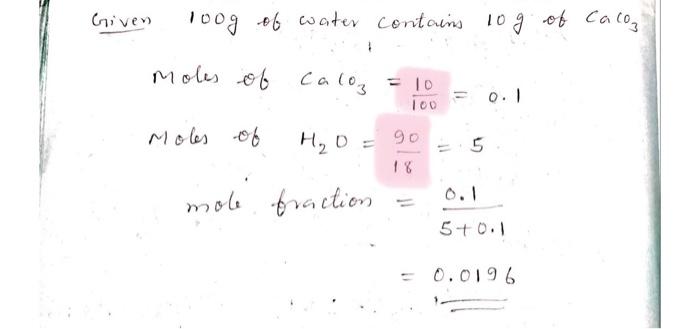 Given 100g of water contains 10g of CaCO3
Moles of CaCO3 = 10/100 = 0.1
Moles of H2O = 90/18 = 5
mole fraction = 0.1/5+0.1
= 0.0196